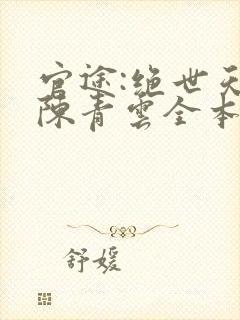 官途:绝世天
陈青云全本
舒媛